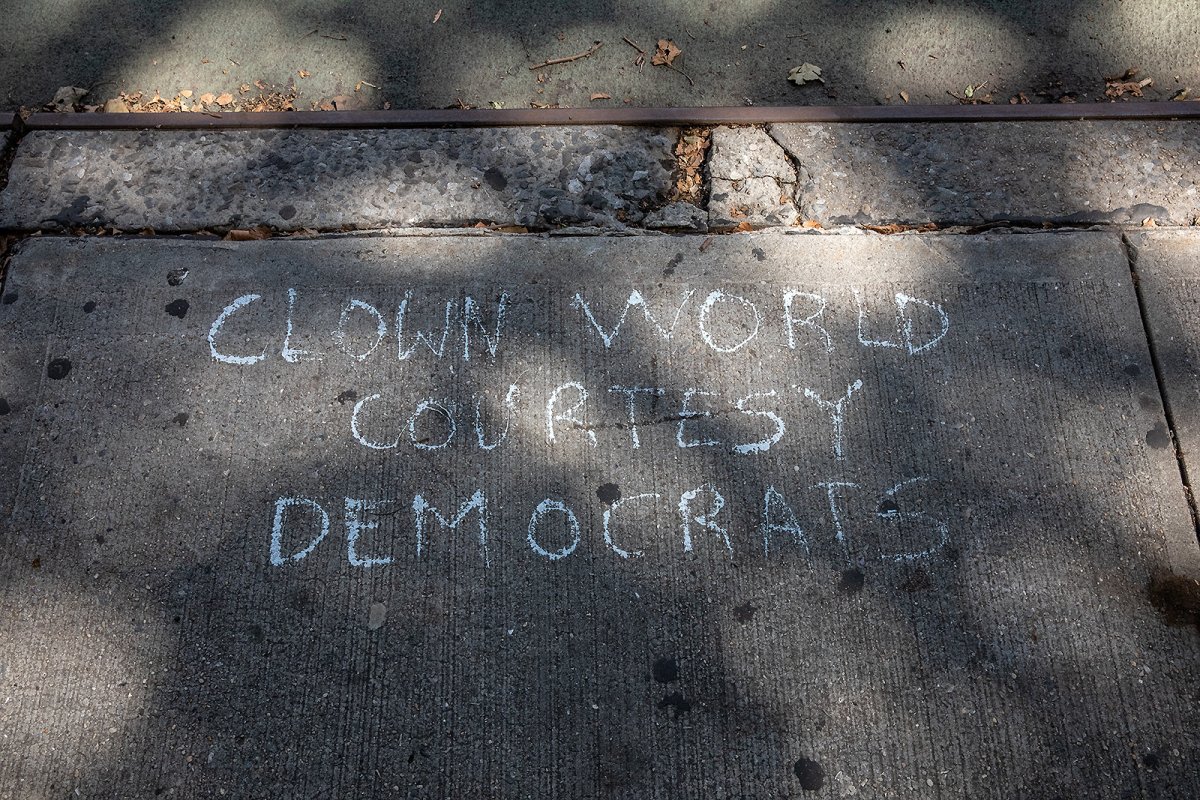 CLOWN WORLD
COURTESY
DEMOCRATS